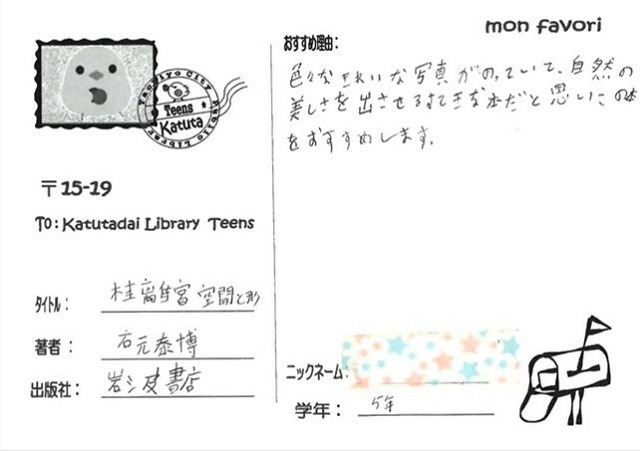 mon favori
Yachiyo City Public Library
Teens
Katuta
〒15-19
To: Katutadai Library Teens
タイトル: 桂離宮 空間と形
著者: 石元泰博
出版社: 岩波書店
おすすめ理由:
色々なきれいな写真がのっていて、自然の
美しさを出させるすてきな本だと思いこの本
をおすすめします。
ニックネーム:
学年: 5年